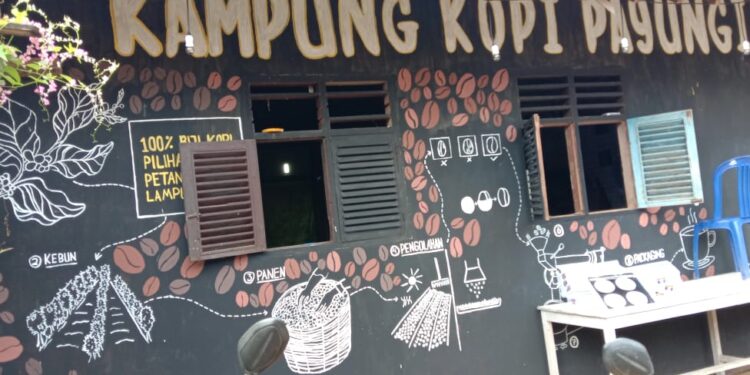 KAMPUNG KOPI PAYUNGI
100% BIJI KOPI
PILIHA
PETAN
LAMPU
2 KEBUN
3 PANEN
4 PENGOLAHAN
PACKAGING